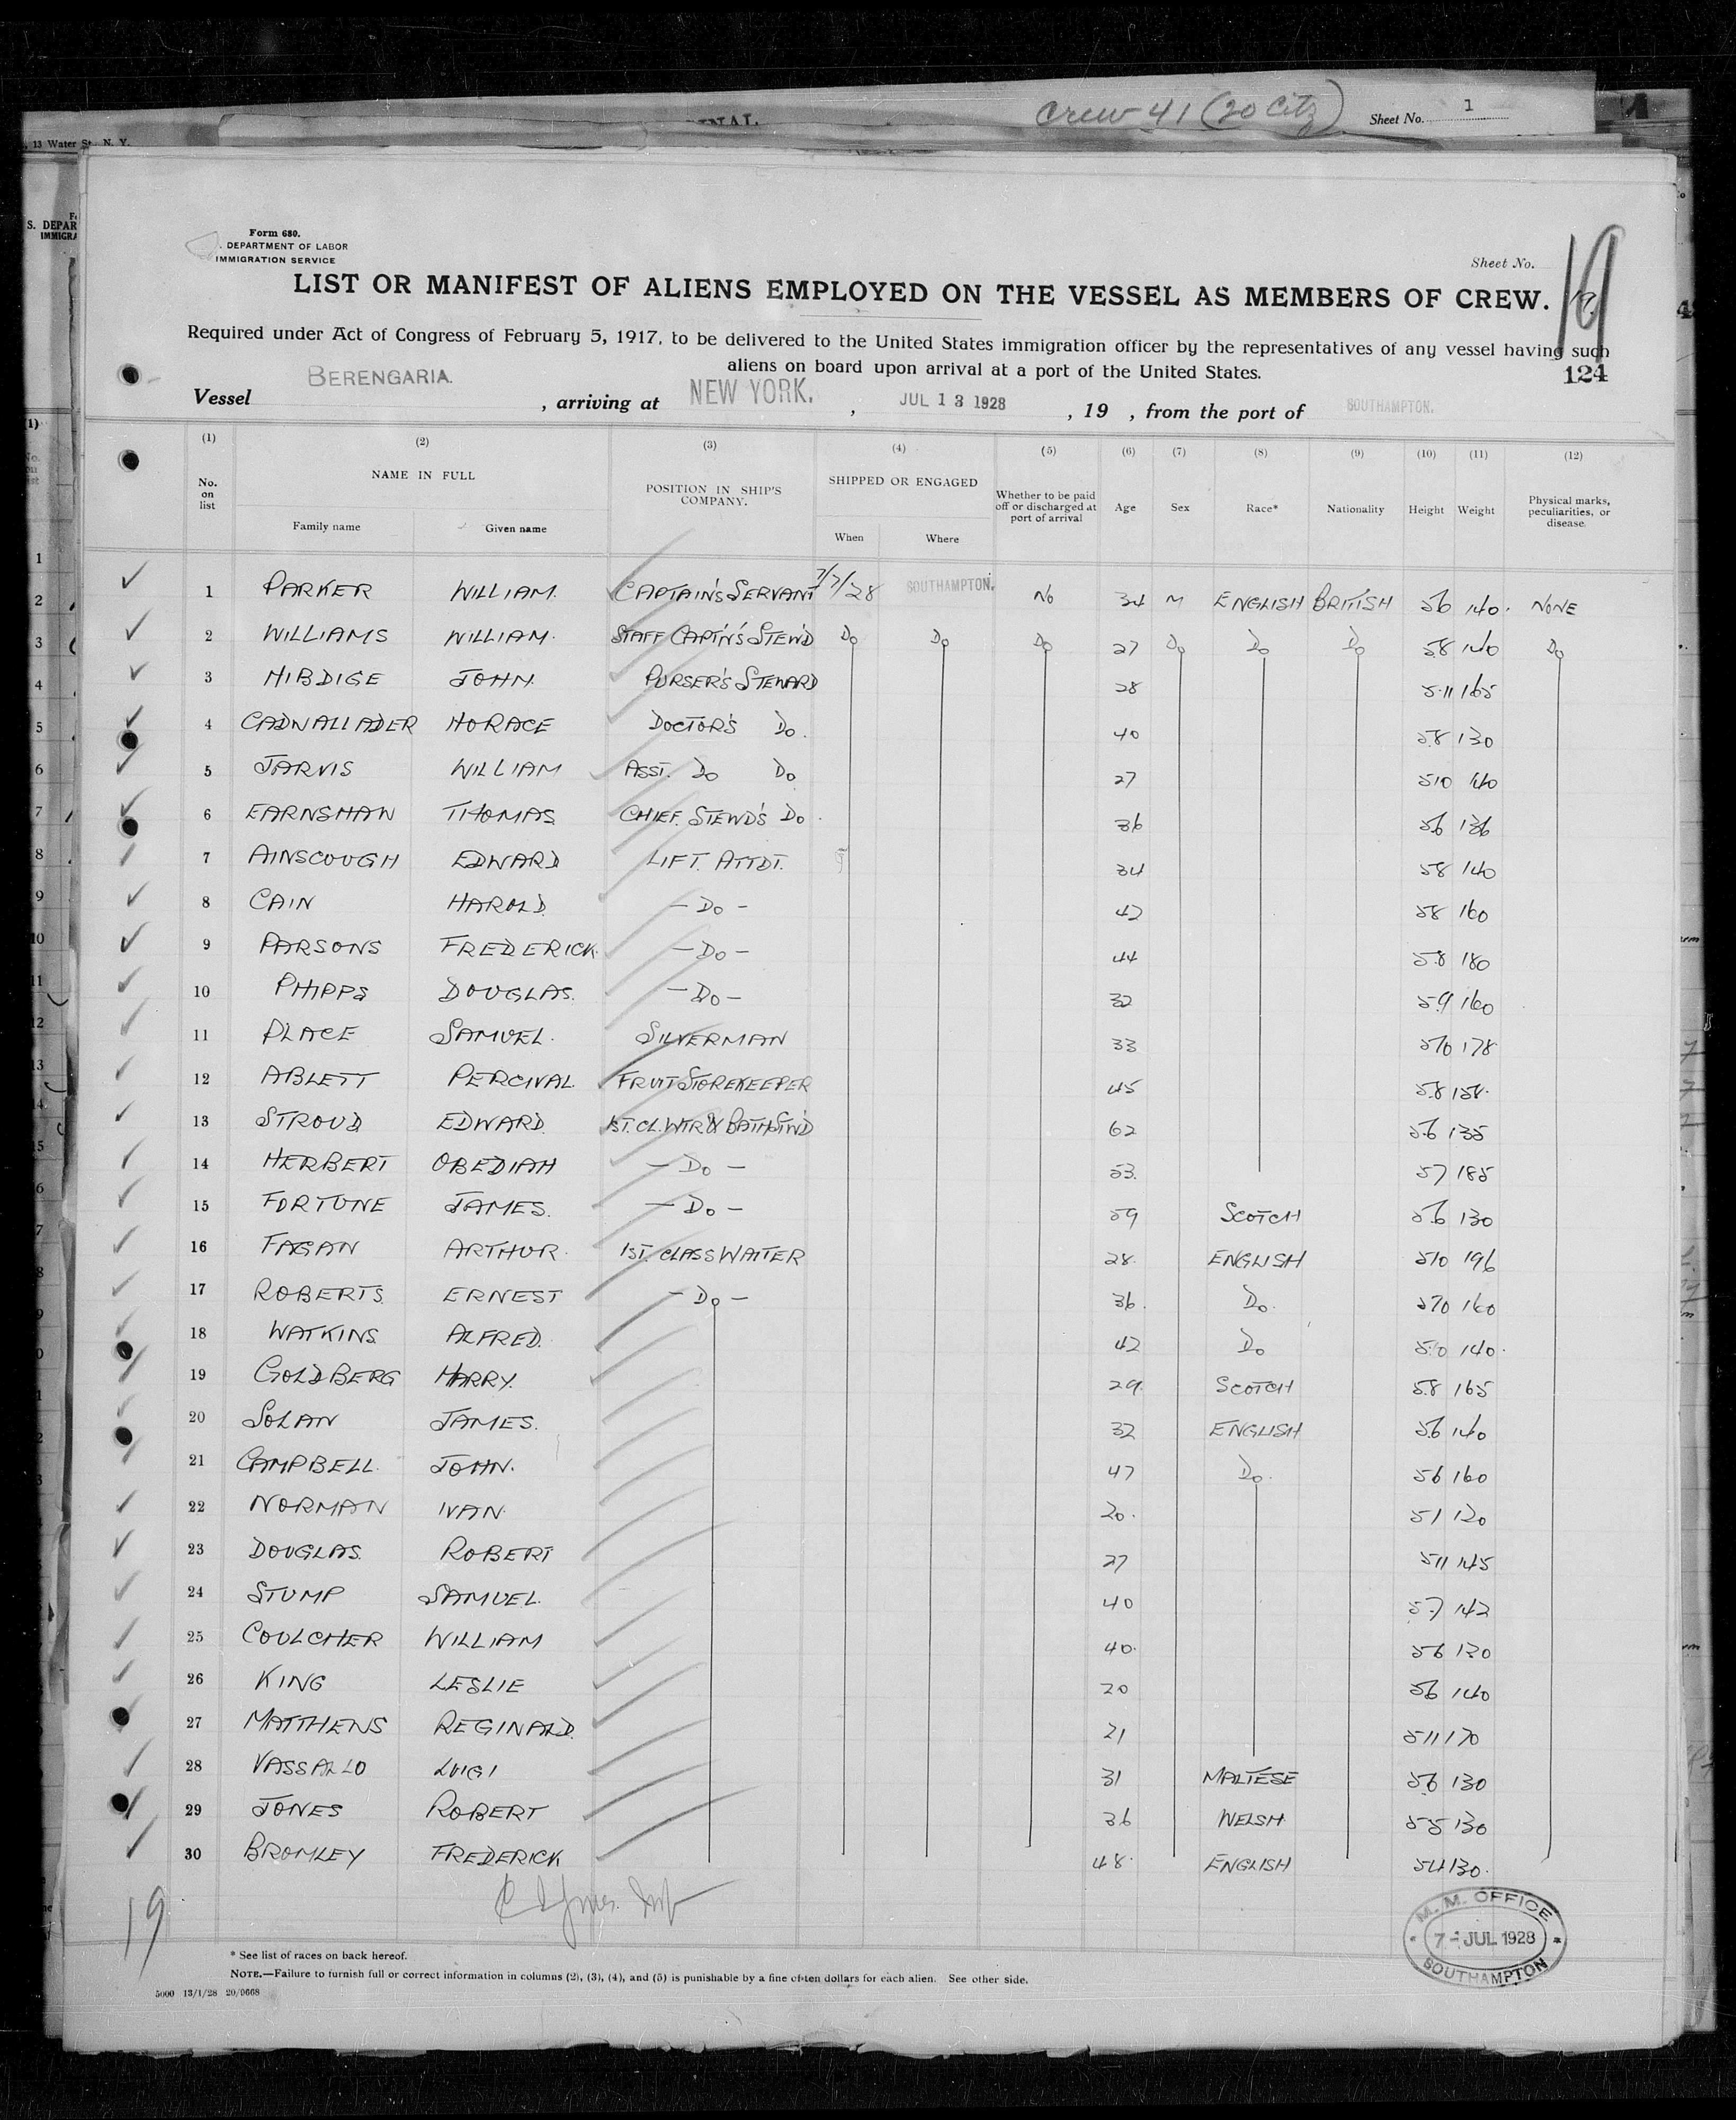 Crew 41 (20 Citz) Sheet No. 1
13 Water St., N. Y.
Form 680.
DEPARTMENT OF LABOR
IMMIGRATION SERVICE
Sheet No.
LIST OR MANIFEST OF ALIENS EMPLOYED ON THE VESSEL AS MEMBERS OF CREW.
Required under Act of Congress of February 5, 1917, to be delivered to the United States immigration officer by the representatives of any vessel having such
aliens on board upon arrival at a port of the United States.
124
Vessel BERENGARIA. , arriving at NEW YORK. , JUL 13 1928 , 19 , from the port of SOUTHAMPTON.
(1) (2) (3) (4) (5) (6) (7) (8) (9) (10) (11) (12)
No. on list NAME IN FULL Family name Given name POSITION IN SHIP'S COMPANY. SHIPPED OR ENGAGED When Where Whether to be paid off or discharged at port of arrival Age Sex Race* Nationality Height Weight Physical marks, peculiarities, or disease.
1 PARKER WILLIAM. CAPTAIN'S SERVANT 7/7/28 SOUTHAMPTON. NO 34 M ENGLISH BRITISH 56 140. NONE
2 WILLIAMS WILLIAM. STAFF CAPT'N'S STEW'D Do Do Do 27 Do Do Do 5.8 140 Do
3 HIBDIGE JOHN. PURSER'S STEWARD 28 5.11 165
4 CADWALLADER HORACE DOCTOR'S Do. 40 5.8 130
5 JARVIS WILLIAM ASST. Do Do 27 510 140
6 EARNSHAW THOMAS CHIEF. STEWD'S Do. 36 56 136
7 AINSCOUGH EDWARD LIFT. ATTDT. 34 58 140
8 CAIN HAROLD. - Do - 42 58 160
9 PARSONS FREDERICK. - Do - 44 5.8 180
10 PHIPPS DOUGLAS. - Do - 32 5.9 160
11 PLACE SAMUEL. SILVERMAN 33 510 178
12 ABLETT PERCIVAL FRUIT STOREKEEPER 45 5.8 158.
13 STROUD EDWARD. 1ST. CL. WTR & BATH ST'W'D 62 5.6 135
14 HERBERT OBEDIAH - Do - 53. 57 185
15 FORTUNE JAMES. - Do - 59 SCOTCH 5.6 130
16 FAGAN ARTHUR. 1ST. CLASS WAITER 28. ENGLISH 510 196
17 ROBERTS ERNEST - Do - 36. Do. 510 160
18 WATKINS ALFRED. 42 Do 5.10 140.
19 GOLDBERG HARRY. 29 SCOTCH 5.8 165
20 SOLAN JAMES. 32 ENGLISH 5.6 140
21 CAMPBELL. JOHN. 47 Do. 56 160
22 NORMAN IVAN. 20. 51 120
23 DOUGLAS. ROBERT 27 511 145
24 STUMP SAMUEL. 40 5.7 142
25 COULCHER WILLIAM 40. 56 130
26 KING LESLIE 20 56 140
27 MATTHEWS REGINALD. 21 511 170
28 VASSALLO LUIGI 31 MALTESE 5.6 130
29 JONES ROBERT 36 WELSH. 5.5 130
30 BROMLEY FREDERICK 48. ENGLISH 54 130.
19
M. M. OFFICE
7 - JUL 1928
SOUTHAMPTON
* See list of races on back hereof.
NOTE.—Failure to furnish full or correct information in columns (2), (3), (4), and (5) is punishable by a fine of ten dollars for each alien. See other side.
5000 13/1/28 20/9668